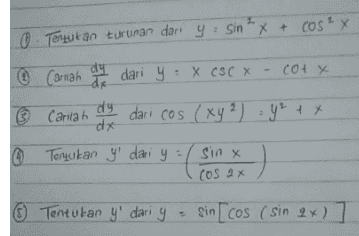 ① . Tentukan turunan dari y = sin² x + cos² x
② Carilah dy/dx dari y = x csc x - cot x
③ Carilah dy/dx dari cos (xy²) = y² + x
④ Tentukan y' dari y = (sin x / cos 2x)
⑤ Tentukan y' dari y = sin [cos (sin 2x)]